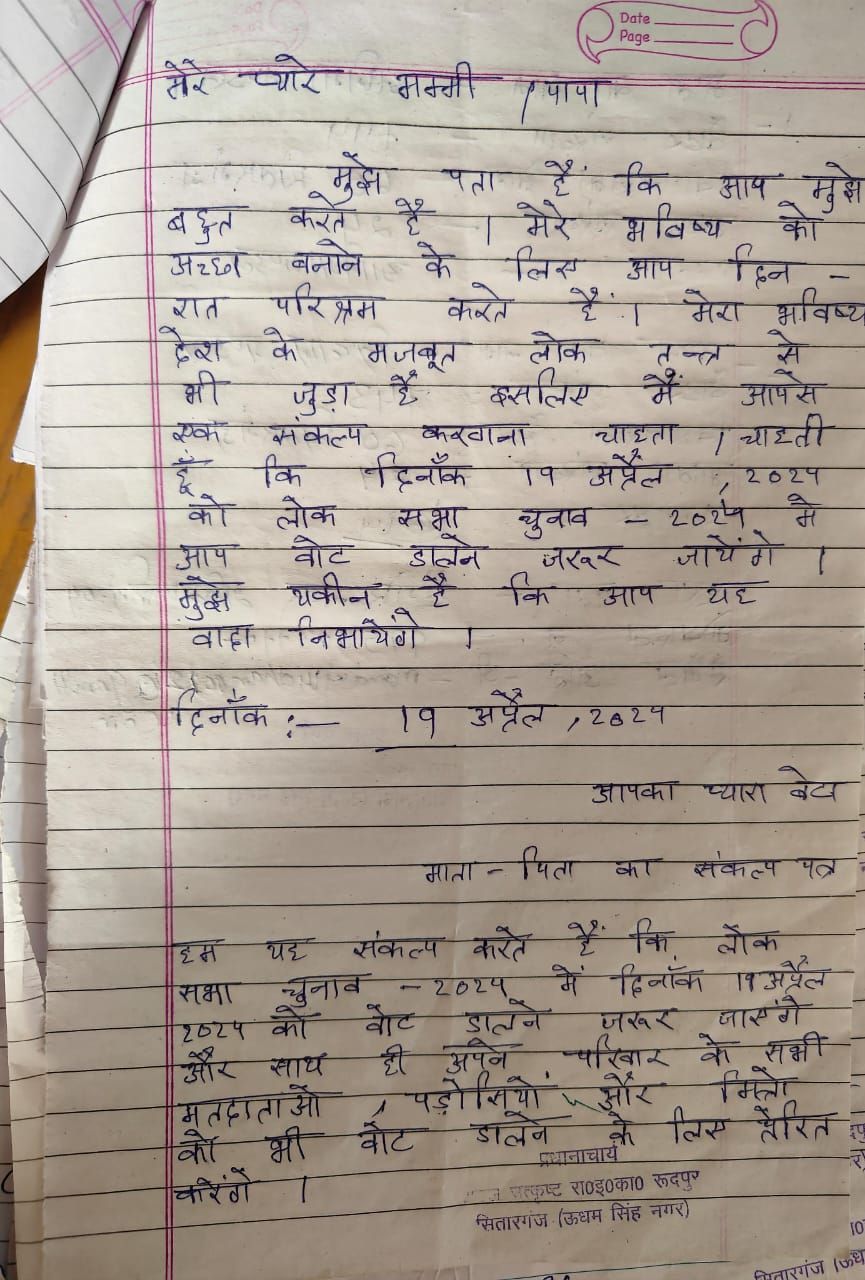 Date
Page
मेरे प्यारे मम्मी / पापा
मुझे पता है कि आप मुझे
बहुत करते है । मेरे भविष्य को
अच्छा बनाने के लिए आप दिन -
रात परिश्रम करते हैं । मेरा भविष्य
देश के मजबूत लोक तन्त्र से
भी जुड़ा है इसलिए मैं आपसे
एक संकल्प करवाना चाहता / चाहती
हूँ कि दिनाँक 19 अप्रैल , 2024
को लोक सभा चुनाव - 2024 मे
आप वोट डालने जरूर जायेंगे ।
मुझे यकीन है कि आप यह
वादा निभायेंगे ।
दिनाँक :- 19 अप्रैल , 2024
आपका प्यारा बेटा
माता - पिता का संकल्प पत्र
हम यह संकल्प करते हैं कि लोक
सभा चुनाव - 2024 में दिनाँक 19 अप्रैल
2024 को वोट डालने जरूर जाएंगे
और साथ ही अपने परिवार के सभी
मतदाताओ , पड़ोसियों और मित्रो
को भी वोट डालने के लिए प्रेरित
करेंगें ।
प्रधानाचार्य
उत्कृष्ट रा0इ0का0 रूदपुर
सितारगंज (ऊधम सिंह नगर)
सितारगंज (ऊध